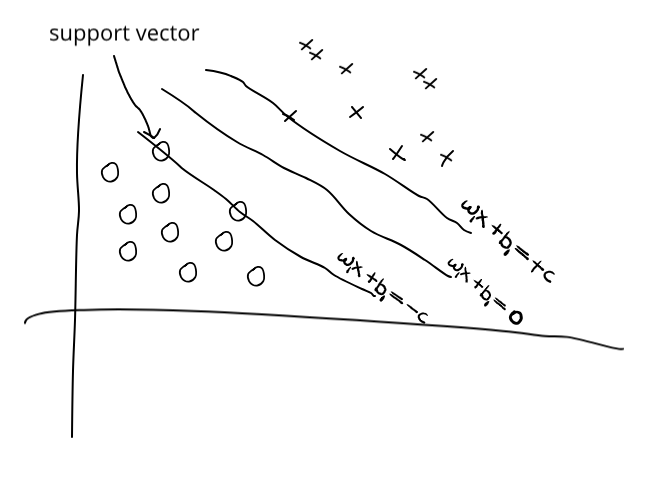 support vector
w₁x + b₁ = +c
w₁x + b₁ = 0
w₁x + b₁ = -c